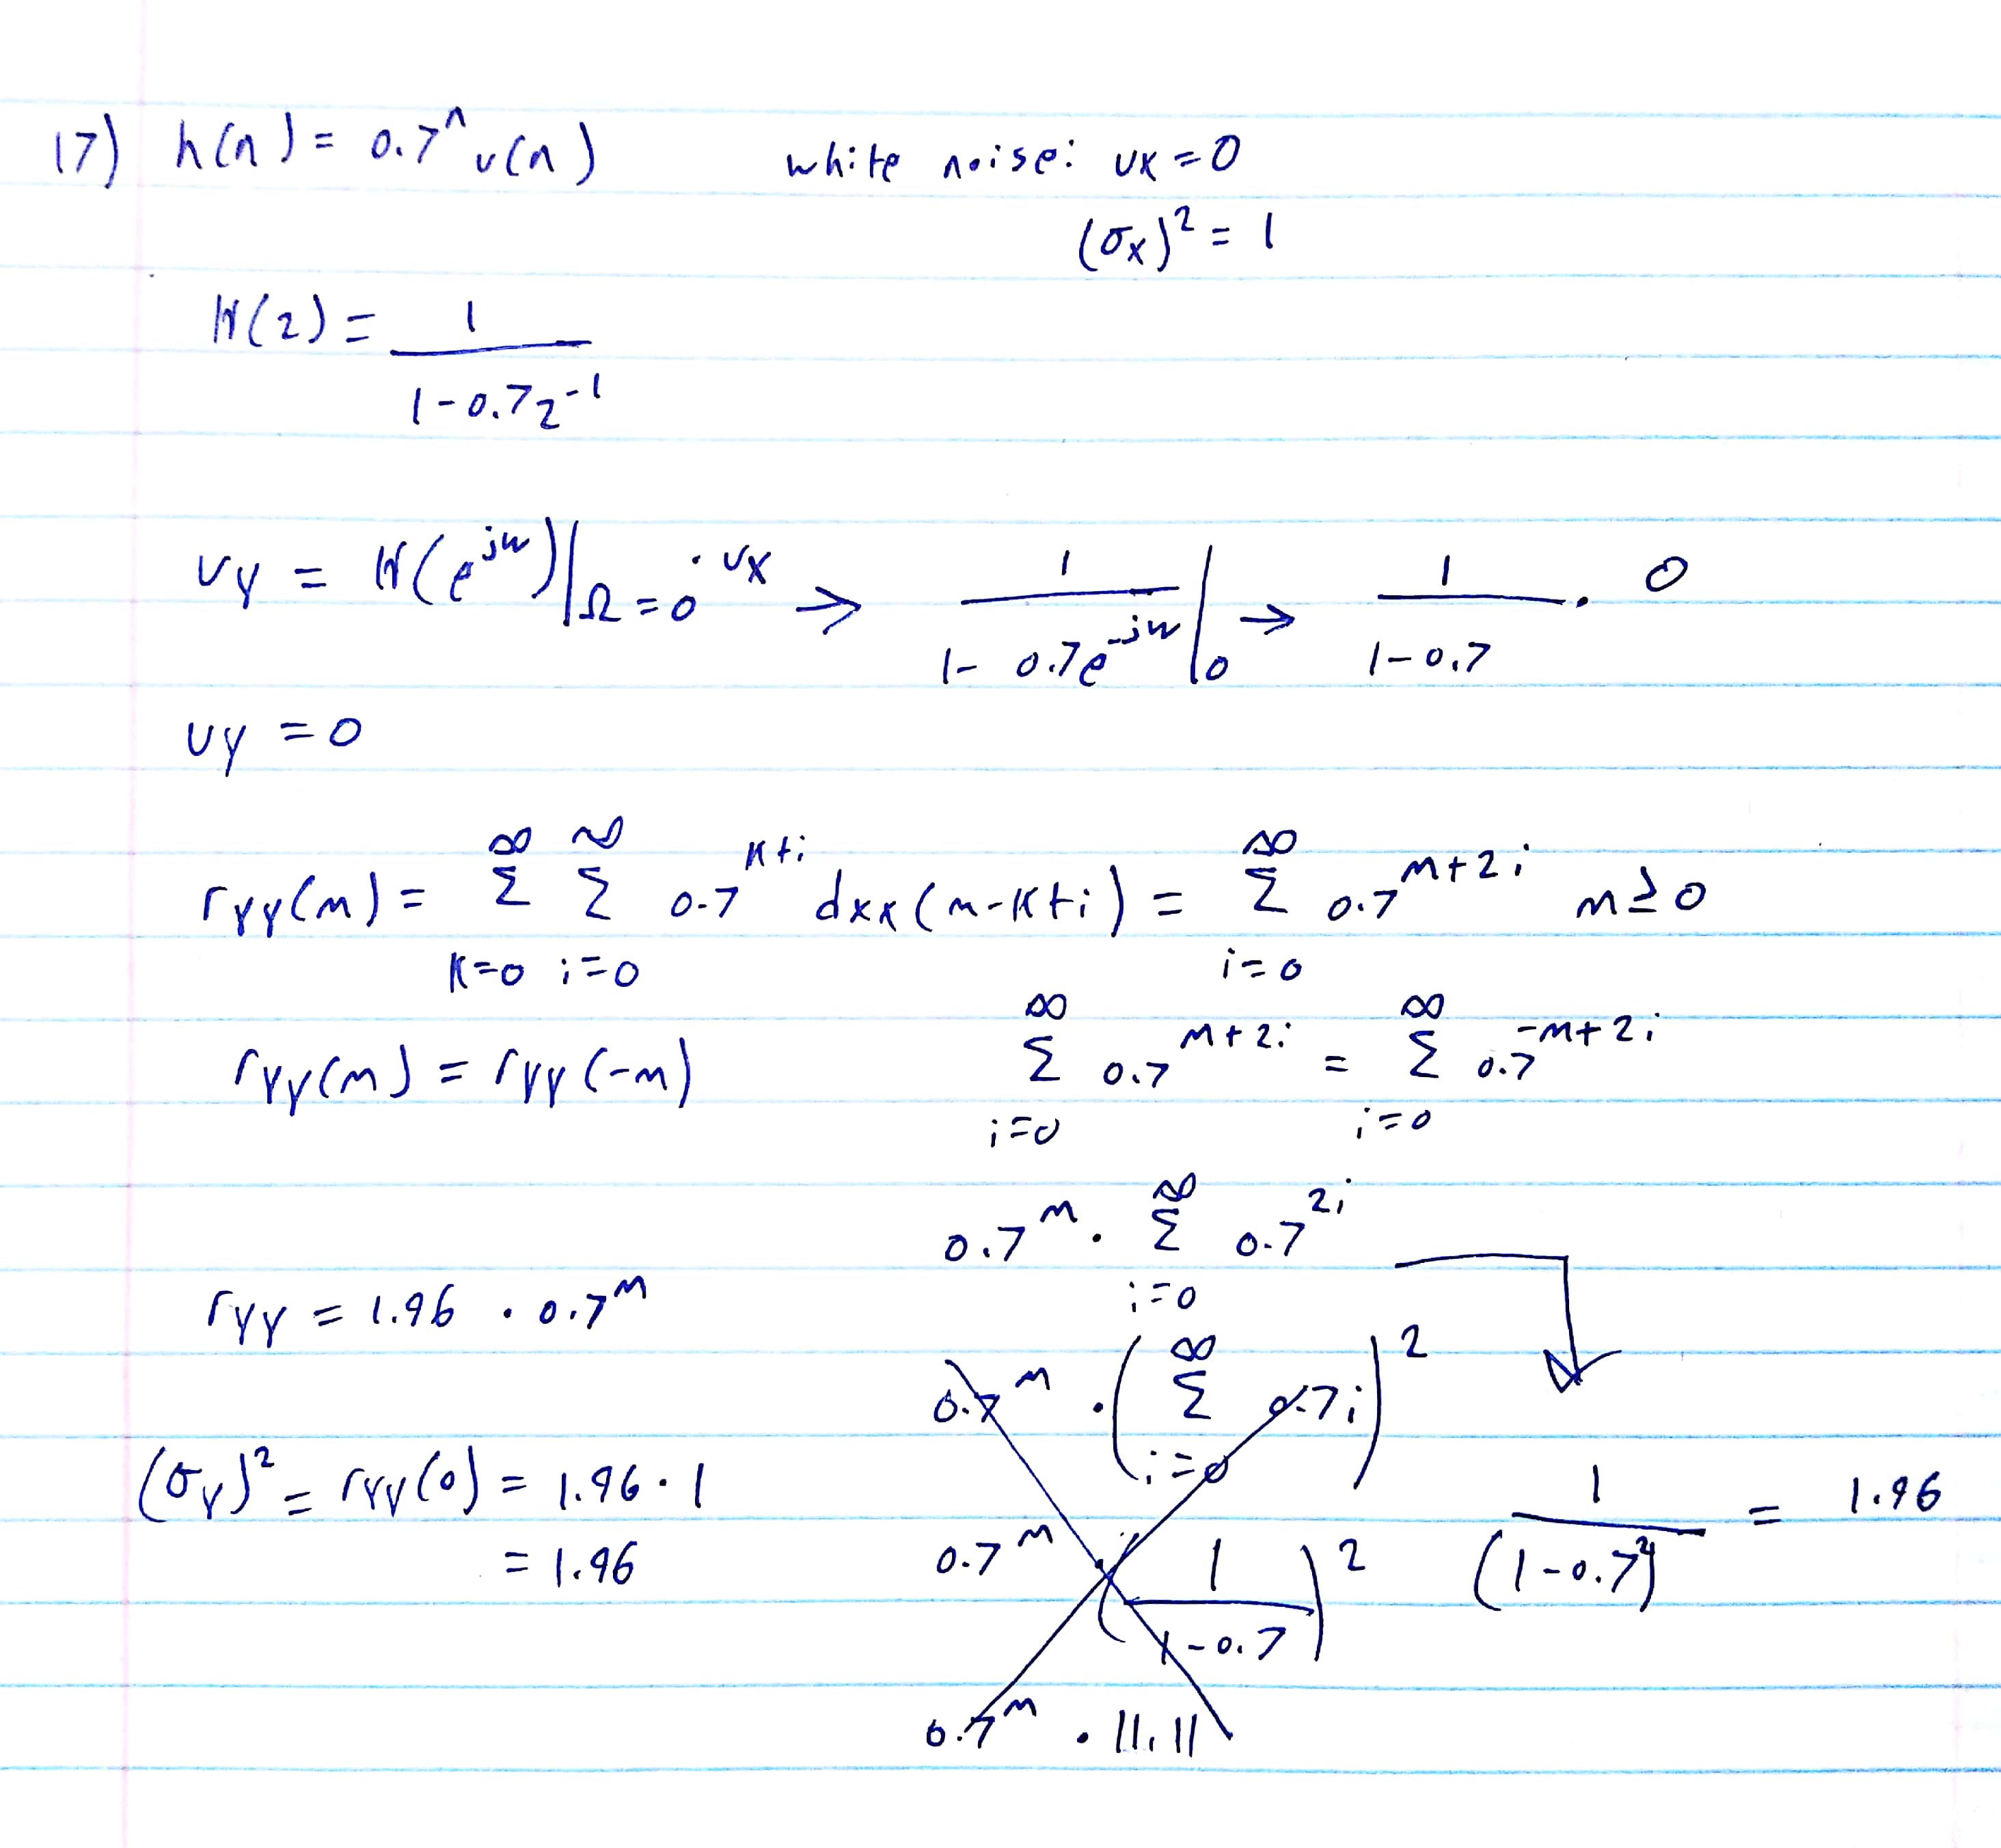 17) h(n) = 0.7^n u(n)    white noise: ux = 0
(σx)^2 = 1
H(z) = 1 / (1 - 0.7z^-1)
uy = H(e^jw)|Ω=0 · ux → 1 / (1 - 0.7e^-jw) |0 → 1 / (1 - 0.7) · 0
uy = 0
ryy(m) = ∞Σk=0 ∞Σi=0 0.7^k+i dxx(m-k+i) = ∞Σi=0 0.7^m+2i m≥0
ryy(m) = ryy(-m)    ∞Σi=0 0.7^m+2i = ∞Σi=0 0.7^-m+2i
0.7^m · ∞Σi=0 0.7^2i
ryy = 1.96 · 0.7^m
0.7^m · (∞Σi=0 0.7i)^2
(σy)^2 = ryy(0) = 1.96 · 1
= 1.96    0.7^m (1 / (1 - 0.7))^2    1 / (1 - 0.7^2) = 1.96
0.7^m · 11.11